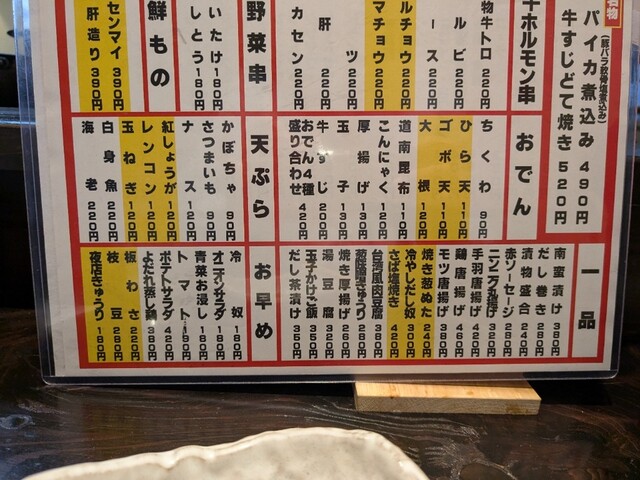 名物
パイカ煮込み 490円
(豚バラ軟骨塩煮込み)
牛すじどて焼き 520円
牛ホルモン串
物牛トロ 220円
ルビ 220円
ース 220円
ルチョウ 220円
マチョウ 220円
ツ 220円
肝 220円
カセン 220円
野菜串
いたけ 180円
しとう 180円
鮮もの
センマイ 390円
肝造り 390円
おでん
ちくわ 90円
ひら天 110円
ゴボ天 110円
大根 120円
道南昆布 110円
こんにゃく 120円
厚揚げ 130円
玉子 130円
牛すじ 200円
おでん4種盛り合わせ 420円
天ぷら
かぼちゃ 90円
さつまいも 90円
ナス 120円
紅しょうが 120円
レンコン 120円
玉ねぎ 120円
白身魚 220円
海老 220円
一品
南蛮漬け 380円
だし巻き 280円
漬物盛合 240円
赤ソーセージ 280円
ニンニク丸揚げ 320円
手羽唐揚げ 420円
鶏唐揚げ 460円
モツ唐揚げ 380円
焼き葱ぬた 240円
冷やしだし奴 300円
さば塩焼き 420円
台湾風肉豆腐 330円
葱胡麻きゅうり 280円
焼き厚揚げ 260円
湯豆腐 320円
玉子かけご飯 350円
だし茶漬け 350円
お早め
冷奴 180円
オニオンサラダ 180円
青菜お浸し 180円
トマト 180円
ポテトサラダ 420円
よだれ蒸し鶏 380円
板わさ 220円
枝豆 280円
夜店きゅうり 180円